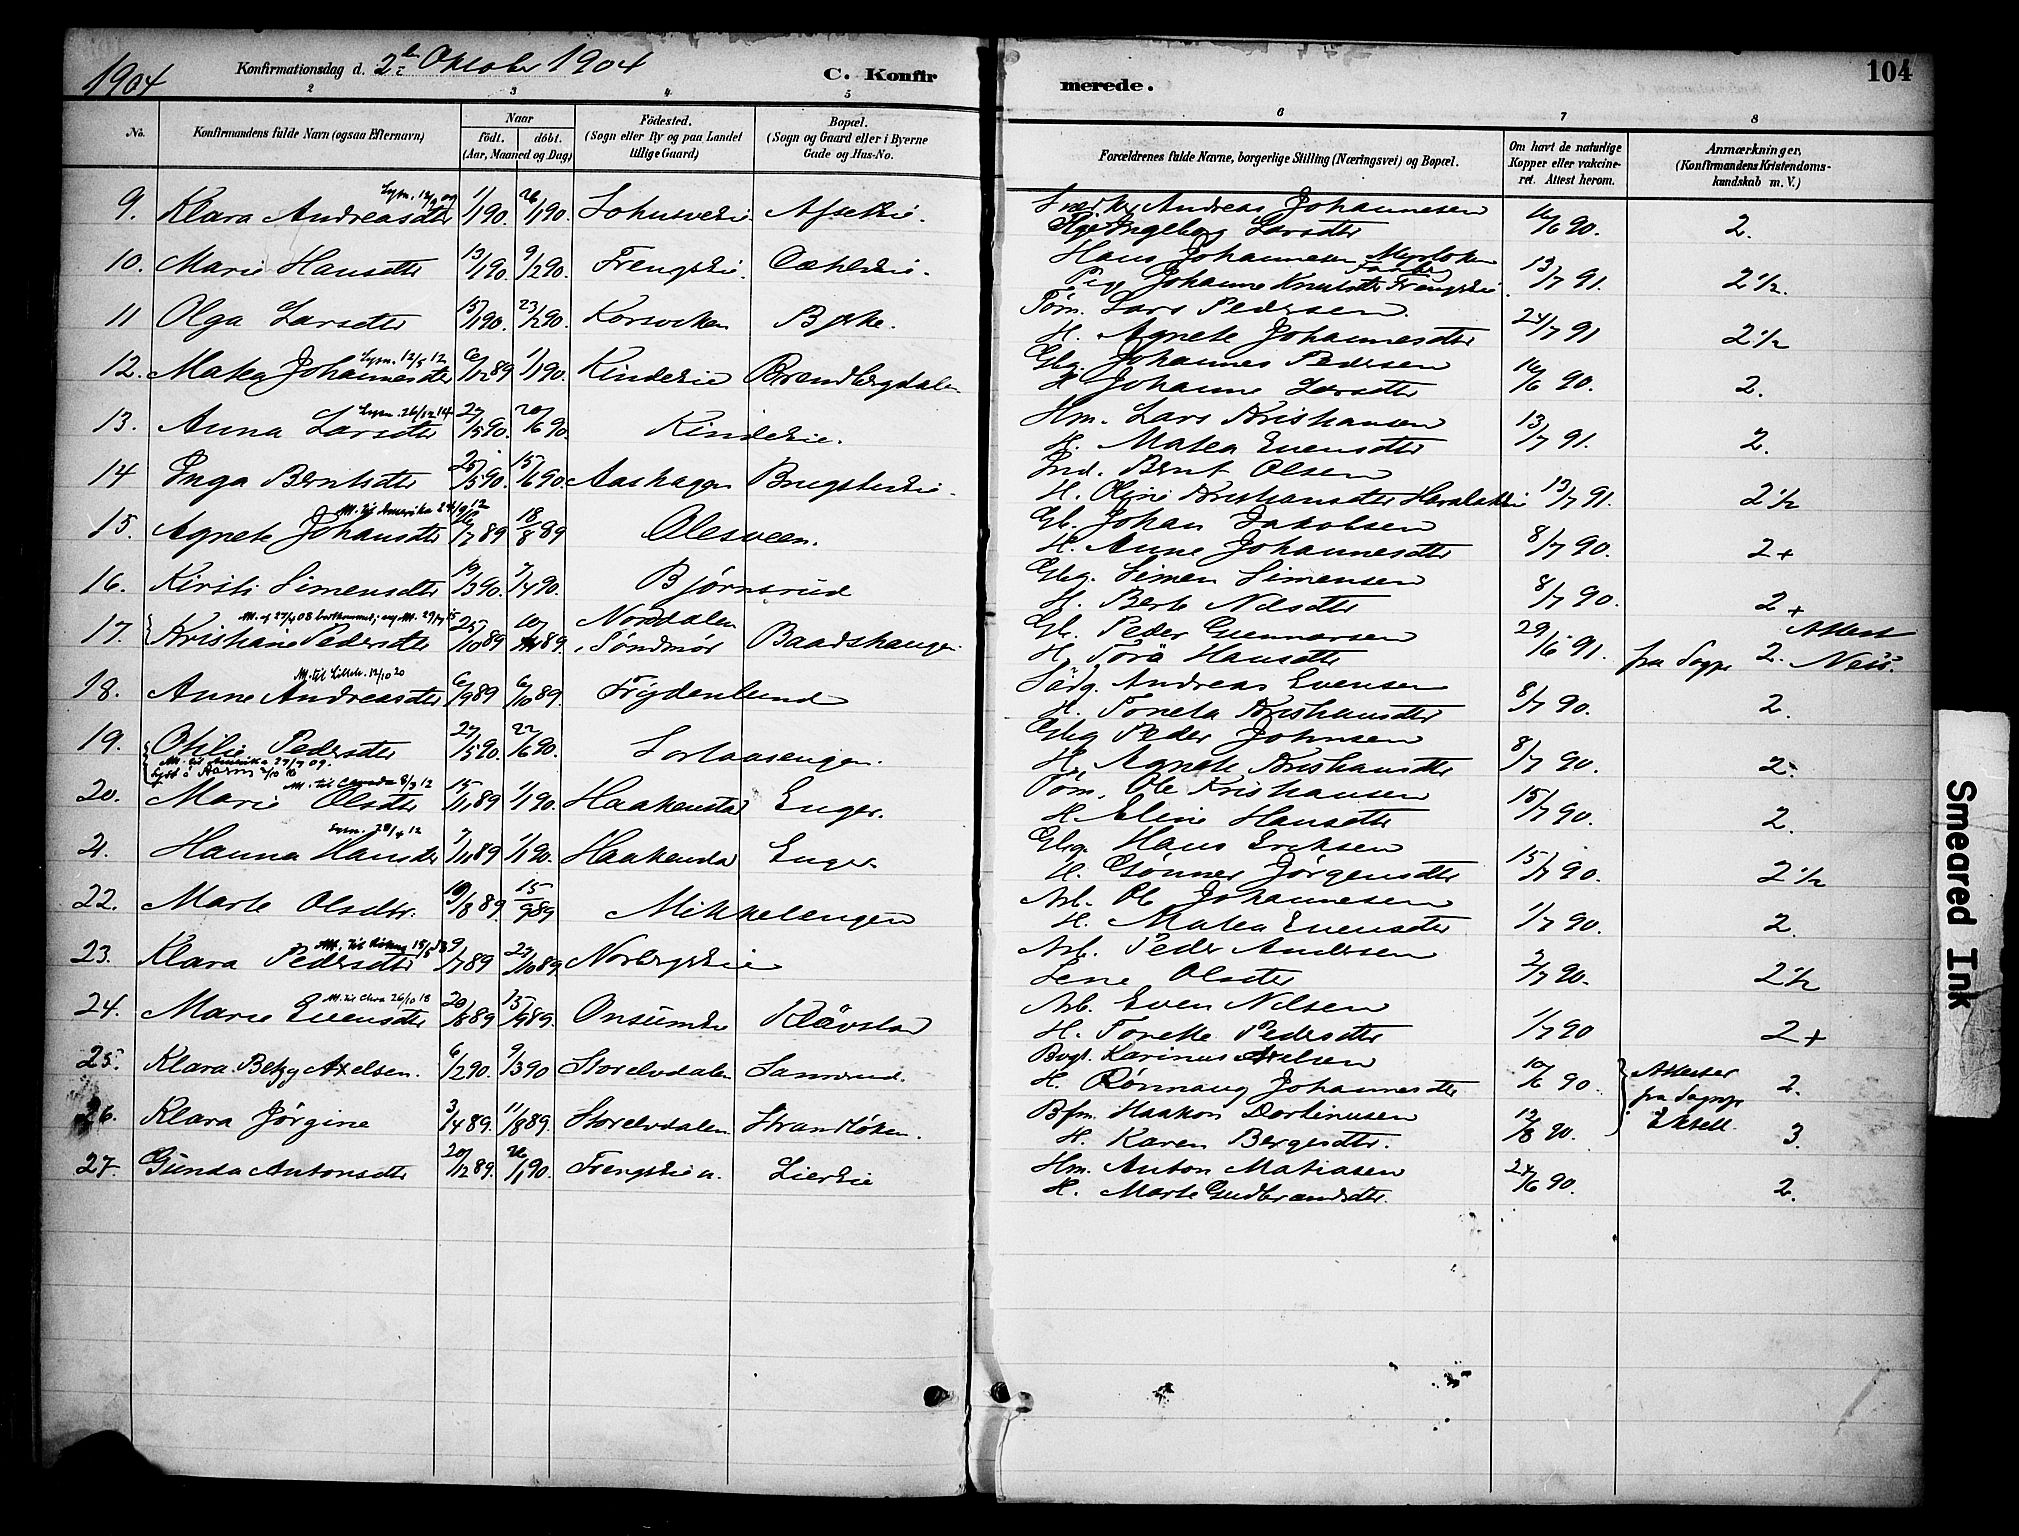 1904
Konfirmationsdag d. 2den Oktober 1904
C. Konfir
merede.
104
2 3 4 5 6 7 8
No.
Konfirmandens fulde Navn (ogsaa Efternavn)
Naar
født. døbt.
(Aar, Maaned og Dag)
Födested.
(Sogn eller By og paa Landet
tillige Gaard)
Bopæl.
(Sogn og Gaard eller i Byerne
Gade og Hus-No.
Forældrenes fulde Navne, borgerlige Stilling (Næringsvei) og Bopæl.
Om havt de naturlige
Kopper eller vakcine-
ret. Attest herom.
Anmærkninger,
(Konfirmandens Kristendoms-
kundskab m. V.)
9. Klara Andreasdtr 1/1 90. 26/1 90. Afsetkie. Snedker Andreas Johannesen
Ingeborg Larsdtr 16/6 90. 2.
10. Marie Hansdtr 13/1 90. 9/2 90. Frengskie. Hans Johannesen
Pige Johanne Knutsdtr Frengskie. 13/7 91. 2 1/2.
11 Olga Larsdtr 15/1 90. 23/2 90. Korsveken Byske. Tøm. Lars Pedersen.
H. Agnete Johannesdtr 24/7 91 2 1/2
Lysn. 12/5 12
12. Matea Johannesdtr 6/12 89 1/1 90. Kindskie Brandbergdalen Gbg. Johannes Pedersen
H. Johanne Larsdtr 16/6 90. 2.
Lysn. 26/12 14
13. Anna Larsdtr 27/5 90. 20/6 90. Kindskie. Hm. Lars Kristiansen
H. Matea Evensdtr 13/7 91. 2.
14 Inga Berntsdtr 25/5 90. 15/6 90. Aashagen Brugsterskie. Ind. Bernt Olsen
H. Oline Kristiansdtr 13/7 91. 2 1/2
M. til Amerika 24/9 12
15. Agnete Johansdtr 16/7 89 18/8 89 Olesveen. Gb. Johan Jakobsen
H. Anne Johannesdtr 8/7 90. 2+
16. Kirsti Simensdtr 19/3 90. 7/4 90. Bjørnsrud Gbg. Simen Simensen
H. Berte Nilsdtr 8/7 90. 2+
17. Kristiane Pedersdtr 25/10 89 89. Norddalen
Søndmør Baadshaugen Gb. Peder Gunnarsen
H. Torö Hansdtr 29/6 91. 2. Attest
fra Sogpr Næs.
M. til Lilleh. 12/10 20
18. Anne Andreasdtr 6/9 89 6/10 89. Frydenlund Sadg. Andreas Evensen
H. Toneta Kristiansdtr 8/7 90. 2.
19. Otilie Pedersdtr 27/5 90. 22/6 90. Sorlaasengen. Gbg Peder Johnsen
H. Agnete Kristiansdtr 8/7 90. 2.
M. til Amerika 27/7 09.
M. til Canada 8/3 12
20. Marie Olsdtr 15/11 89 1/1 90. Haakenstad Enger. Tøm. Ole Kristiansen
H. Eline Hansdtr 15/7 90. 2.
Lysn. 28/4 12
21. Hanna Hansdtr 7/11 89 1/1 90. Haakensta Enger. Gbg. Hans Eriksen
H. Gønner Jørgensdtr 15/7 90. 2 1/2
22. Marte Olsdtr. 10/8 89. 15/9 89 Mikkelengen Arb. Ole Johannesen
H. Matea Evensdtr 1/7 90. 2.
23. Klara Pedersdtr 9/7 89 27/10 89 Norbergskie Arb. Peder Andersen
Lene Olsdtr 2/7 90. 2 1/2
M. til Chra 26/10 18
24. Marie Evensdtr 20/8 89 15/9 89. Onsumskie Kløvstad Arb. Even Nilsen
H. Tonette Pedersdtr 1/7 90 2+
25. Klara Betzy Axelsen. 6/2 90. 9/3 90 Storelvdalen Samrud. Bvgt. Karinus Axelsen
H. Rønnaug Johannesdtr 10/6 90. Attester 2.
fra Sognpr
26. Klara Jørgine 3/4 89. 11/8 89. Storelvdalen Strandløken. Bfm. Haakon Dortinusen
H. Karen Bergersdtr. 12/8 90. 3.
27. Gunda Antonsdtr 20/12 89. 26/1 90. Frengskie n. Lierskie Hm. Anton Matiasen
H. Marte Gudbrandsdtr. 24/6 90. 2.
Smeared Ink